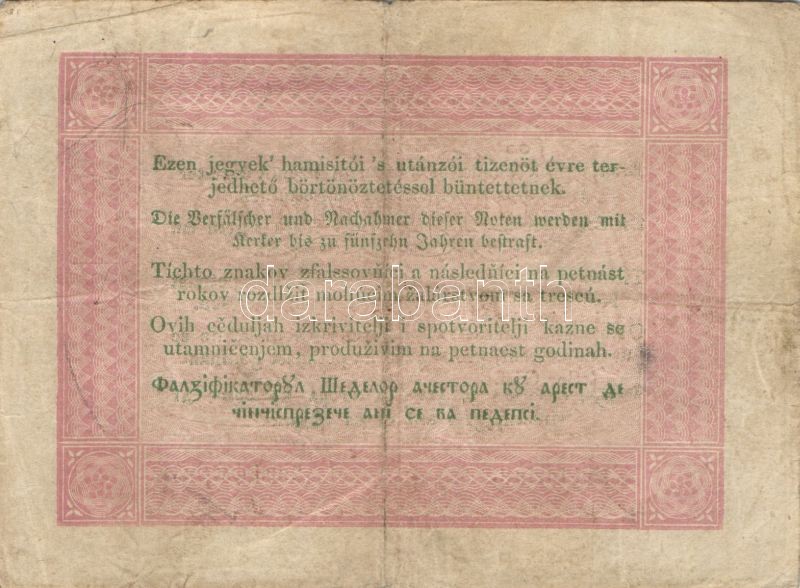 Ezen jegyek' hamisitói 's utánzói tizenöt évre ter-
jedhető börtönöztetéssol büntettetnek.
Die Verfälscher und Nachahmer dieser Noten werden mit
Kerker bis zu fünfzehn Jahren bestraft.
Tíchto znakov zfalssovňáji a následňíci na petnást
rokov rozdlžit
žalárstvom sa trescú.
darabanth.com
Ovih cěduljah izkrivitelji i spotvoritelji kazne se
utamničenjem, produživim na petnaest godinah.
Фалꙁіфікаторꙋл Шеделор ачестора кꙋ арест де
чінчіспреꙁече ані се ва педепсі.